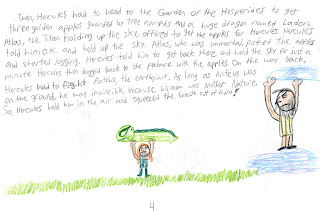 Then, Hercules had to head to the Garden of the Hesperides to get
three golden apples guarded by tree nymphs and a huge dragon named Ladon.
Atlas, the Titan holding up the sky, offered to get the apples for Hercules. Hercules
told him ok and held up the sky. Atlas, who was immortal, picked the apples
and started jogging. Hercules told him to get back there and hold the sky for just a
minute. Hercules then jogged back to the palance with the apples. On the way back,
Hercules had to fight Anteus, the earthgiant. As long as anteus was
on the ground, he was invincible, because his mom was Mother Nature.
So, Hercules held him in the air and squeezed the breath out of him!
4